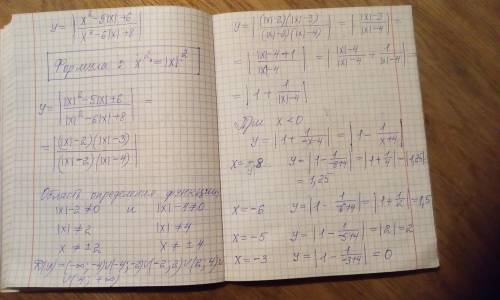 y = | x² - 5|x| + 6 / x² - 6|x| + 8 |
Формула : x² = |x|²
y = | |x|² - 5|x| + 6 / |x|² - 6|x| + 8 | =
= | (|x| - 2)(|x| - 3) / (|x| - 2)(|x| - 4) |
Область определения функции
|x| - 2 ≠ 0 и |x| - 4 ≠ 0
|x| ≠ 2 |x| ≠ 4
x ≠ ± 2 x ≠ ± 4
D(y) = (-∞; -4)∪(-4; -2)∪(-2; 2)∪(2; 4)∪
∪(4; +∞)
y = | (|x| - 2)(|x| - 3) / (|x| - 2)(|x| - 4) | = | |x| - 3 / |x| - 4 | =
= | |x| - 4 + 1 / |x| - 4 | = | |x| - 4 / |x| - 4 + 1 / |x| - 4 | =
= | 1 + 1 / |x| - 4 |
При x < 0
y = | 1 + 1 / -x - 4 | = | 1 - 1 / x + 4 |
x = -8 y = | 1 - 1 / -8 + 4 | = | 1 + 1/4 | = |1,25| =
= 1,25
x = -6 y = | 1 - 1 / -6 + 4 | = | 1 + 1/2 | = 1,5
x = -5 y = | 1 - 1 / -5 + 4 | = |2| = 2
x = -3 y = | 1 - 1 / -3 + 4 | = 0